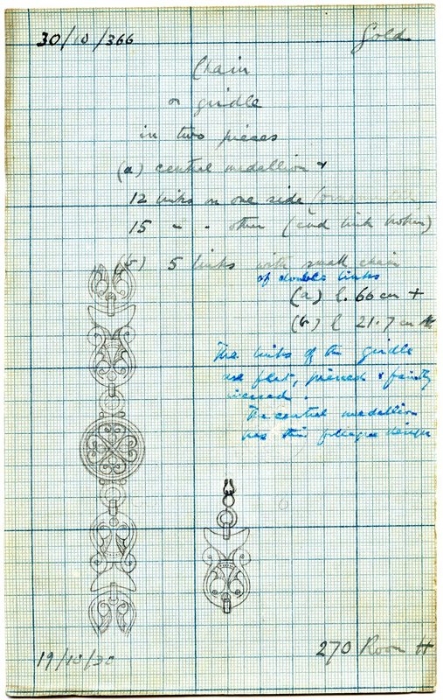 30/10/366
Gold
Chain
or girdle
in two pieces
(a) central medallion +
12 links on one side
15 " " other (end link broken)
(b) 5 links with small chain
of double links
(a) l. 66 cm +
(b) l 21.7 cm
The links of the girdle
are flat, pierced & faintly
incised.
The central medallion
has thin filagree design
19/10/30
270 Room H